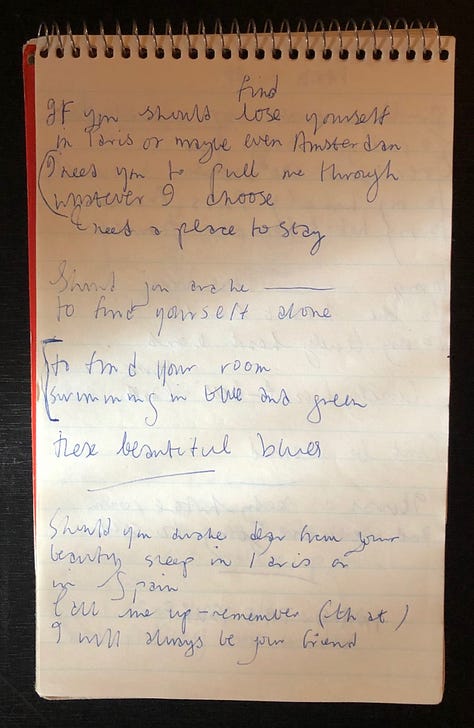 find
If you should lose yourself
in Paris or maybe even Amsterdam
I need you to pull me through
whatever I choose
need a place to stay
Should you awake
to find yourself alone
to find your room
swimming in blue and green
these beautiful blues
Should you awake dear from your
beauty sleep in Paris or
in Spain
Call me up - remember (that)
I will always be your friend